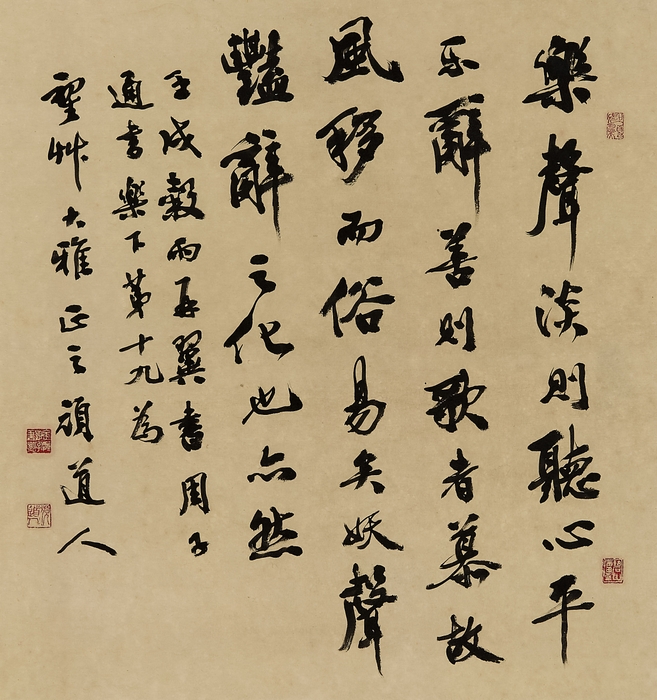 樂聲淡則聽心平
乐辭善則歌者慕故
風移而俗易矣妖聲
豔辭之化也亦然
壬戌穀雨再翼書周子
通書樂下第十九為
聖艸大雅正之頑道人